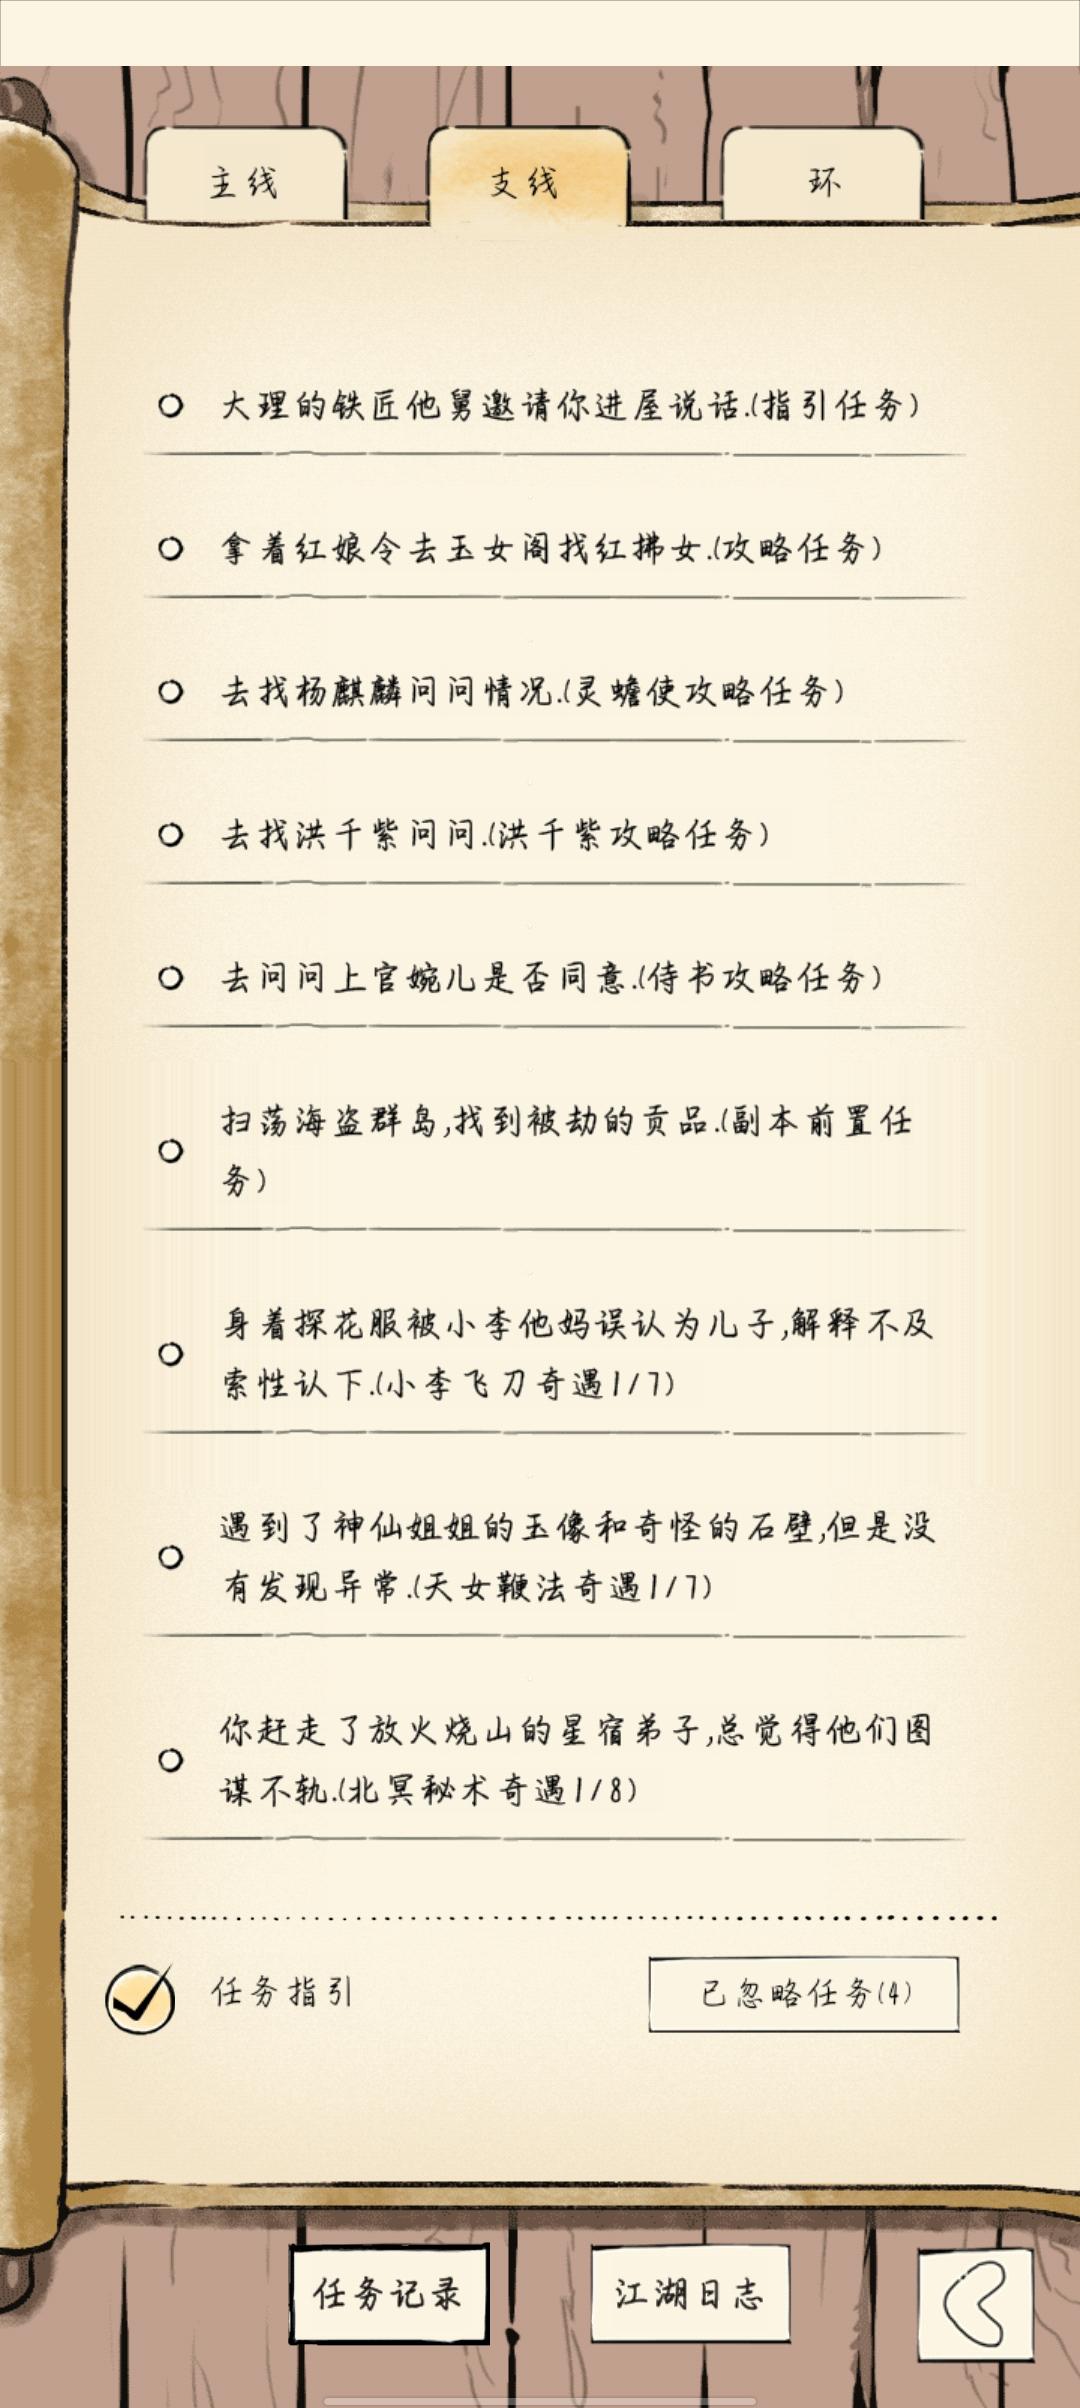 主线
支线
环
大理的铁匠他舅邀请你进屋说话.(指引任务)
拿着红娘令去玉女阁找红拂女.(攻略任务)
去找杨麒麟问问情况.(灵蟾使攻略任务)
去找洪千紫问问.(洪千紫攻略任务)
去问问上官婉儿是否同意.(侍书攻略任务)
扫荡海盗群岛,找到被劫的贡品.(副本前置任
务)
身着探花服被小李他妈误认为儿子,解释不及
索性认下.(小李飞刀奇遇1/7)
遇到了神仙姐姐的玉像和奇怪的石壁,但是没
有发现异常.(天女鞭法奇遇1/7)
你赶走了放火烧山的星宿弟子,总觉得他们图
谋不轨.(北冥秘术奇遇1/8)
任务指引
已忽略任务(4)
任务记录
江湖日志